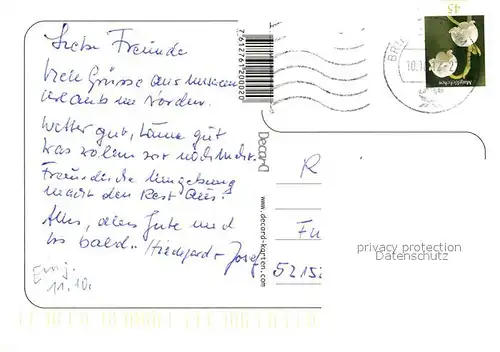 Liebe Freunde
Viele Grüsse aus unserem
Urlaub im Norden.
Wetter gut, Laune gut
was wollen wir noch mehr.
Freundliche Umgebung
macht den Rest aus!
Alles, alles Gute und
bis bald. Hildegard + Josef
Eing.
11.10.
7612761200020
Decard
www.decard-karten.com
45
Maiglöckchen
BRI
10.1
2-2
R
Fu
5215
privacy protection
Datenschutz